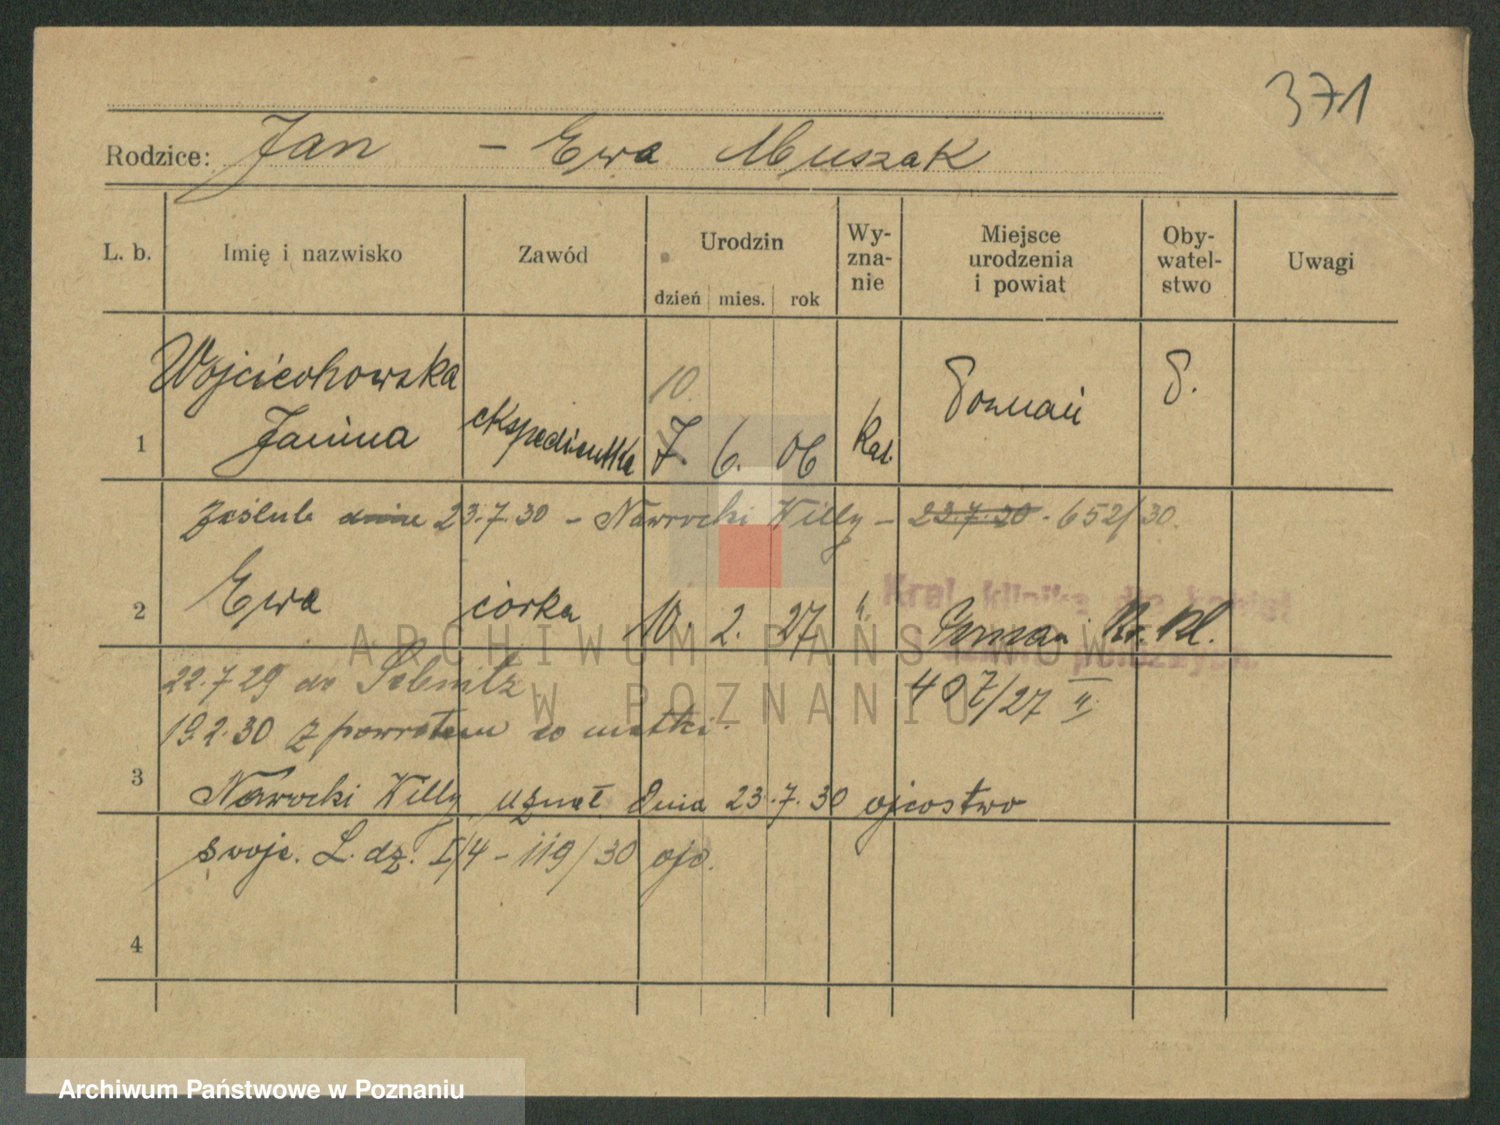 371
Rodzice: Jan - Ewa Muszak
L. b. Imię i nazwisko Zawód Urodzin dzień mies. rok Wy-zna-nie Miejsce urodzenia i powiat Oby-watel-stwo Uwagi
Wojciechowska
1 Janina ekspedientka 10. 7. 6. 06 kat. Poznań P.
zaślub. dnia 23.7.30 - Nawrocki Willy - 23.7.30 - 652/30.
2 Ewa córka 10. 2. 27 " Poznań
Kral. klinika dla kobiet
ARCHIWUM PAŃSTWOWE
W POZNANIU
22.7.29 do Sebnitz 407/27 II
19.2.30 z powrotem do matki.
3 Nawrocki Willy uznał dnia 23.7.30 ojcostwo
swoje. L. dz. I/4 - 119/30 ojc.
4
Archiwum Państwowe w Poznaniu